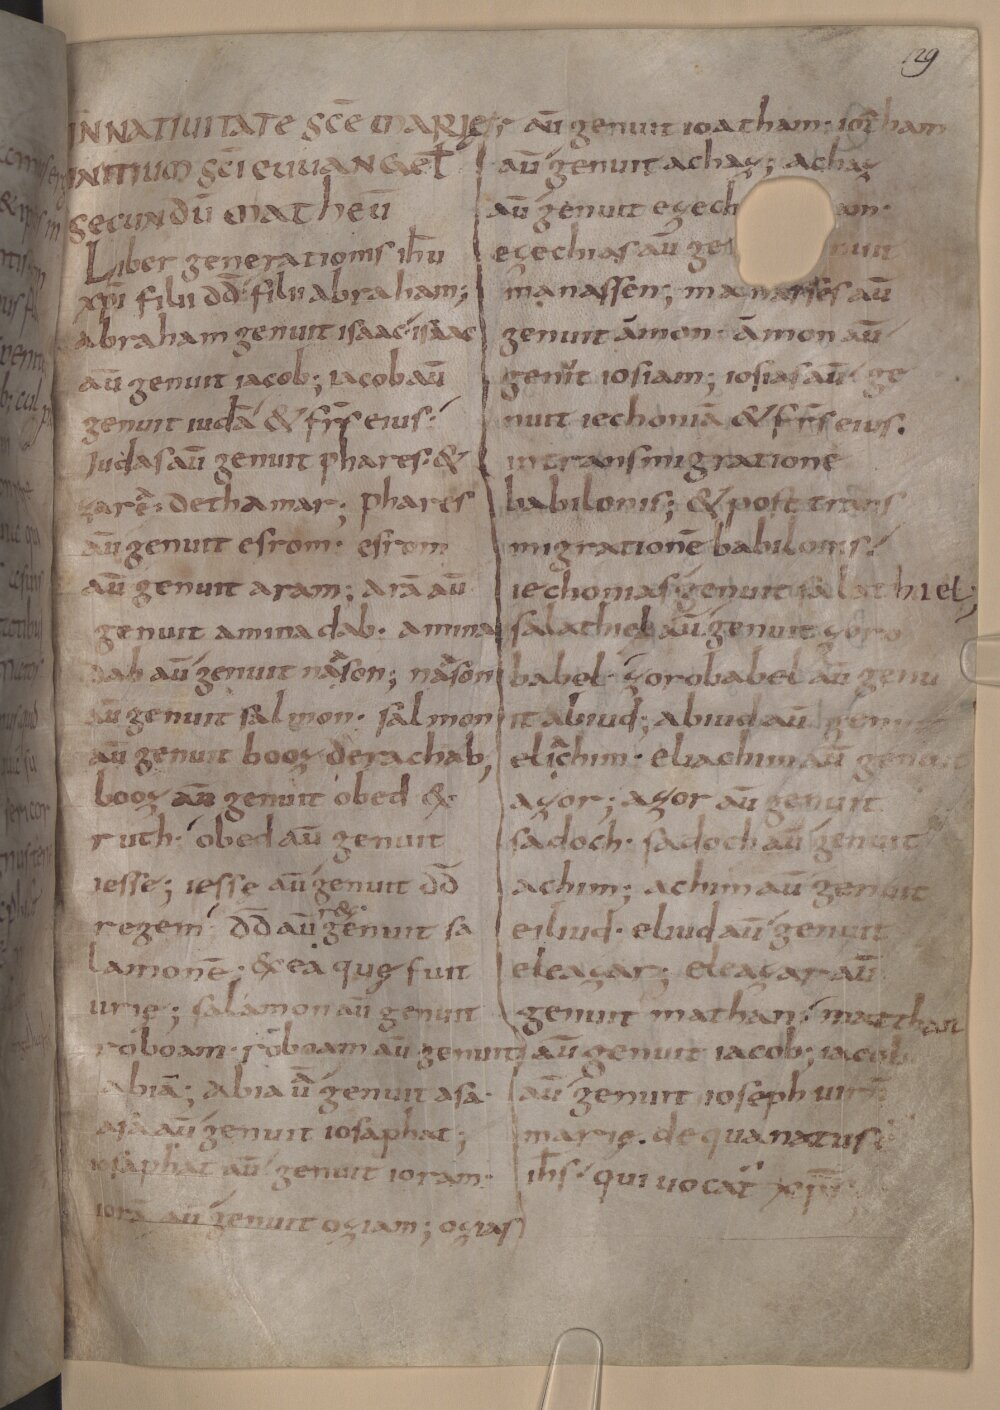 29
IN NATIUITATE SCE MARIE
INITIUM SCI EUUANGEL
SECUNDU MATHEU
Liber generationis ihu
xpi filii dd filii abraham;
abraham genuit isaac· isaac
au genuit iacob; iacob au
genuit iuda & frs eius·
Judas au genuit phares· &
zare· de thamar; phares
au genuit esrom· esrom
au genuit aram; ara au
genuit aminadab· amina
dab au genuit nason; nason
au genuit salmon· salmon
au genuit booz de rachab,
booz au genuit obed &·
ruth· obed au genuit
iesse; iesse au genuit dd
regem· dd au rex genuit sa
lamone· & ea quę fuit
urię; salamon au genuit
roboam· roboam au genuit
abia; abia u genuit asa·
asa au genuit iosaphat;
iosaphat au genuit ioram·
iora au genuit oziam; ozias
au genuit ioatham· ioatham
au genuit achaz; achaz
au genuit ezech
ezechias au ge nuit
manassen; manasses au
genuit amon· amon au
genuit iosiam; iosias au ge
nuit iechonia & frs eius.
in transmigratione
babilonis; & post trans
migratione babilonis·
iechonias genuit salathiel;
salathiel au genuit zoro
babel· zorobabel au genu
it abiud; abiud au genuit
eliachim· eliachim au genuit
azor; azor au genuit
sadoch· sadoch au genuit
achim; achim au genuit
eiliud· eliud au genuit
eleazar; eleazar au
genuit mathan· matthan
au genuit iacob; iacob
au genuit ioseph uiru
marię. de qua natus
ihs· qui uocat xps;